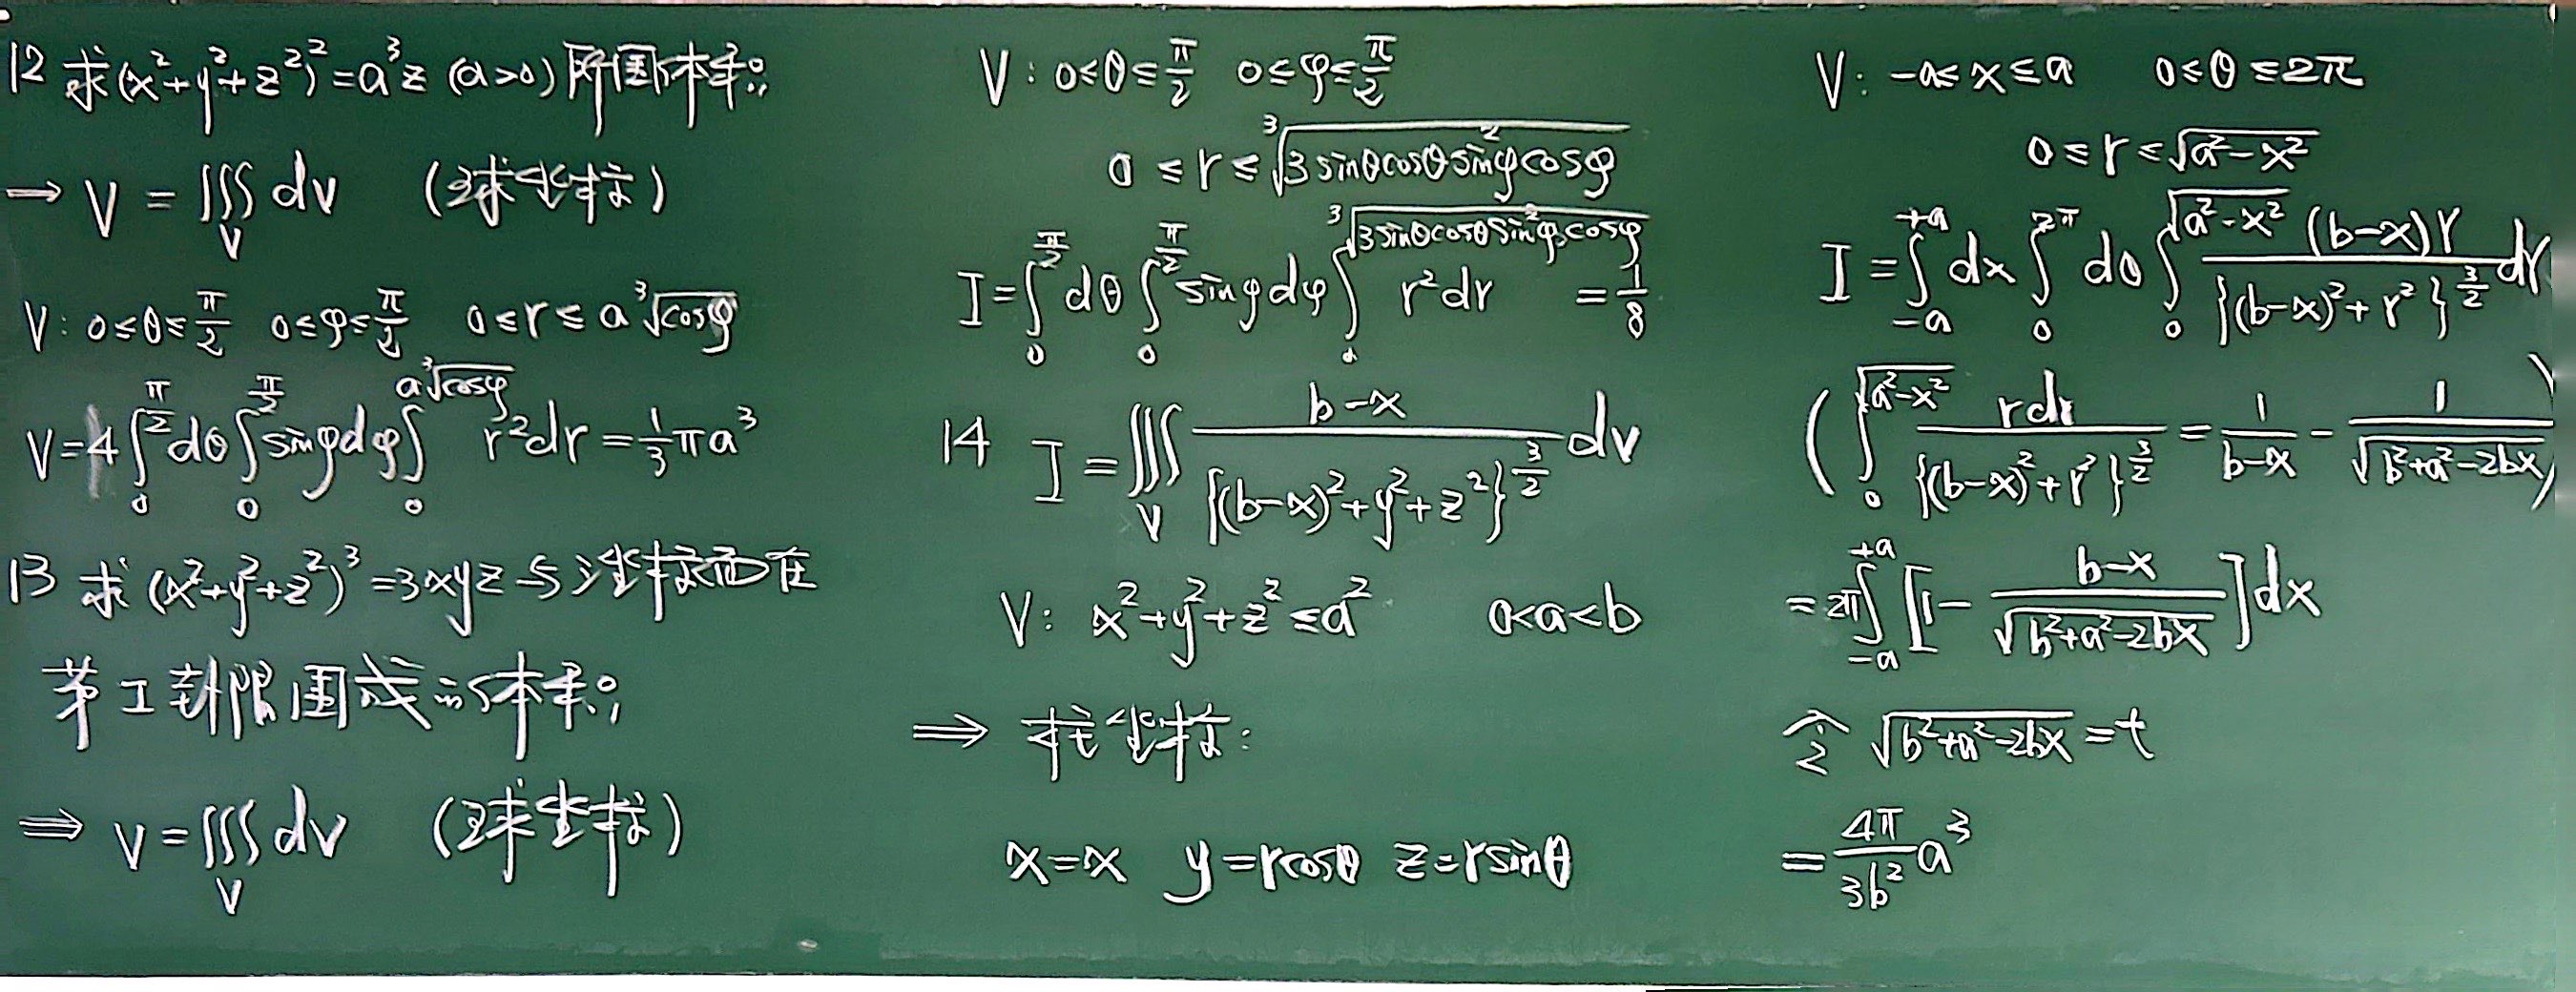 12 求(x²+y²+z²)²=a³z (a>0) 所围体积
→ V = ∭_V dv (球坐标)
V: 0≤θ≤π/2 0≤φ≤π/2 0≤r≤a∛(cosφ)
V=4∫₀^(π/2) dθ ∫₀^(π/2) sinφdφ ∫₀^(a∛(cosφ)) r²dr = 1/3 πa³
13 求 (x²+y²+z²)³=3xyz 与 坐标面在
第I卦限围成的体积
⇒ V=∭_V dv (球坐标)
V: 0≤θ≤π/2 0≤φ≤π/2
0≤r≤∛(3sinθcosθsin²φcosφ)
I=∫₀^(π/2) dθ ∫₀^(π/2) sinφdφ ∫₀^(∛(3sinθcosθsin²φcosφ)) r²dr = 1/8
14 I=∭_V (b-x)/{(b-x)²+y²+z²}^(3/2) dv
V: x²+y²+z²≤a² 0<a<b
⇒ 柱坐标:
x=x y=rcosθ z=rsinθ
V: -a≤x≤a 0≤θ≤2π
0≤r≤√(a²-x²)
I=∫₋ₐ^(+a) dx ∫₀^(2π) dθ ∫₀^(√(a²-x²)) (b-x)r/{(b-x)²+r²}^(3/2) dr
(∫₀^(√(a²-x²)) rdr/{(b-x)²+r²}^(3/2) = 1/(b-x) - 1/√(b²+a²-2bx))
=2π∫₋ₐ^(+a) [1-(b-x)/√(b²+a²-2bx)]dx
令 √(b²+a²-2bx)=t
=4π/(3b²) a³